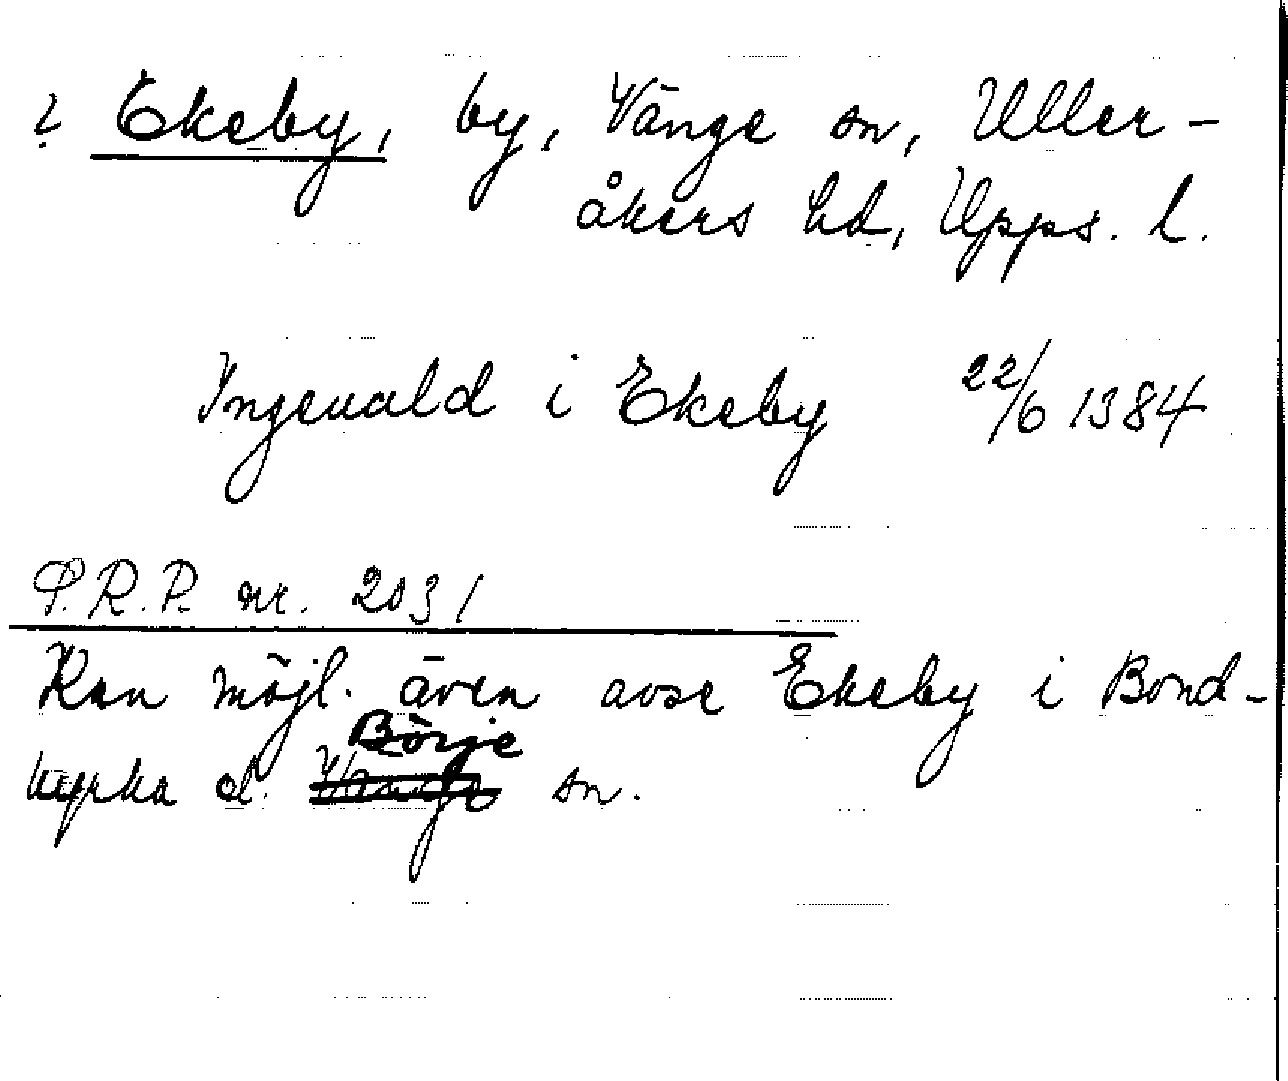 ? Ekeby, by, Vänge sn, Uller-
åkers hd, Upps. l.
Ingeuald i Ekeby 22/6 1384
S.R.P. nr. 2031
Kan möjl. även avse Ekeby i Bond-
Börje
kyrka el. sn.